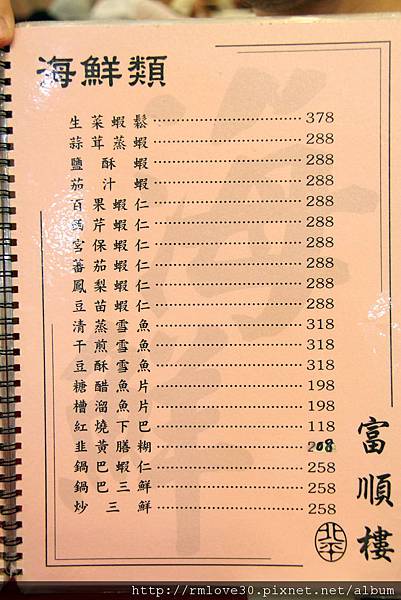 海鮮類
生菜蝦鬆 378
蒜茸蒸蝦 288
鹽酥蝦 288
茄汁蝦 288
百果蝦仁 288
西芹蝦仁 288
宮保蝦仁 288
蕃茄蝦仁 288
鳳梨蝦仁 288
豆苗蝦仁 288
清蒸雪魚 318
干煎雪魚 318
豆酥雪魚 318
糖醋魚片 198
糟溜魚片 198
紅燒下巴 118
韭黃膳糊 208
鍋巴蝦仁 258
鍋巴三鮮 258
炒三鮮 258
富順樓
北平
海鮮
http://rmlove30.pixnet.net/album